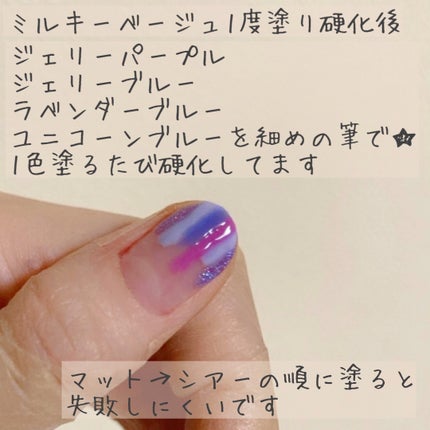 ミルキーベージュ1度塗り硬化後
ジェリーパープル
ジェリーブルー
ラベンダーブルー
ユニコーンブルーを細めの筆で★
1色塗るたび硬化してます
マット→シアーの順に塗ると
失敗しにくいです